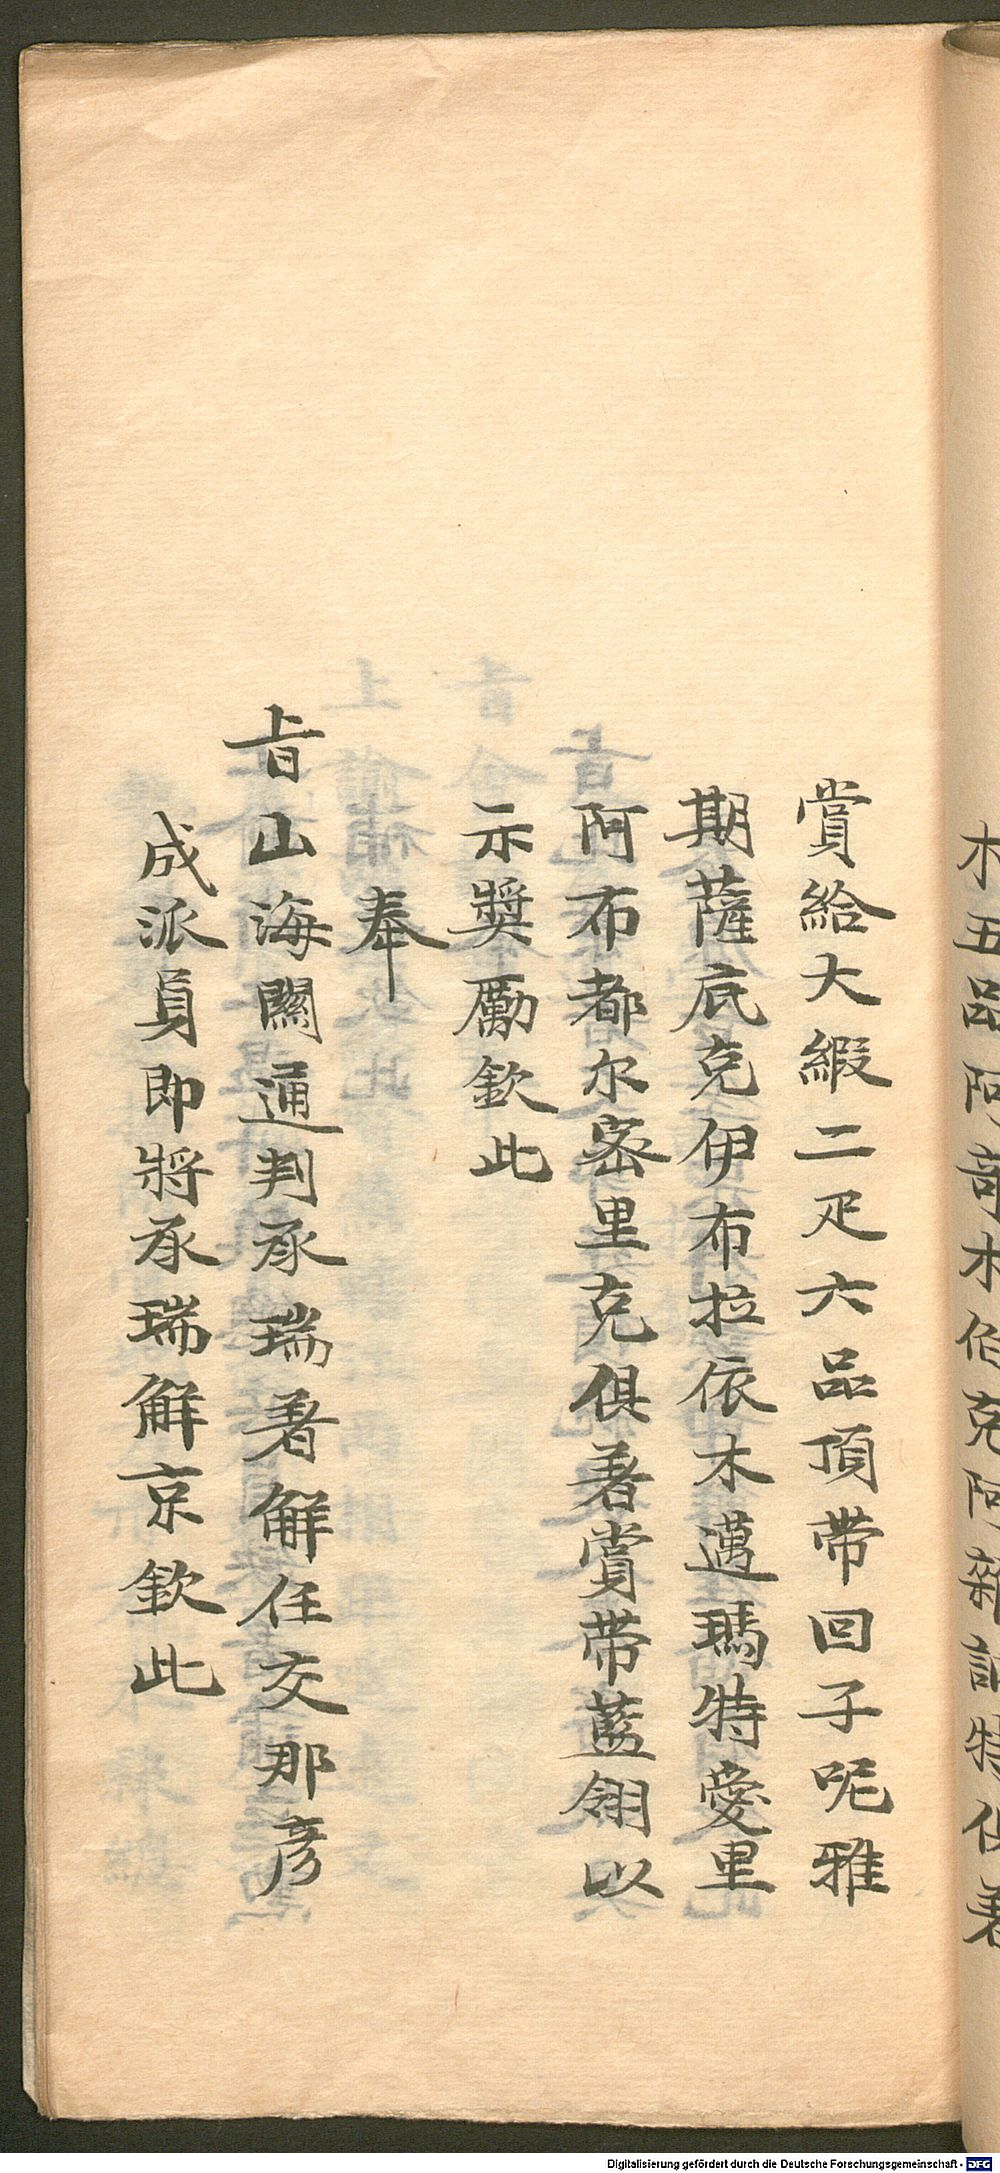 木五品阿奇木伯克阿雜
賞給大緞二疋六品頂帶回子呢雅
期薩底克伊布拉依木邁瑪特愛里
阿布都尔密里克俱著賞帶藍翎以
示獎勵欽此
奉
旨山海關通判承瑞著解任交那彥
成派員即將承瑞解京欽此
Digitalisierung gefördert durch die Deutsche Forschungsgemeinschaft - DFG